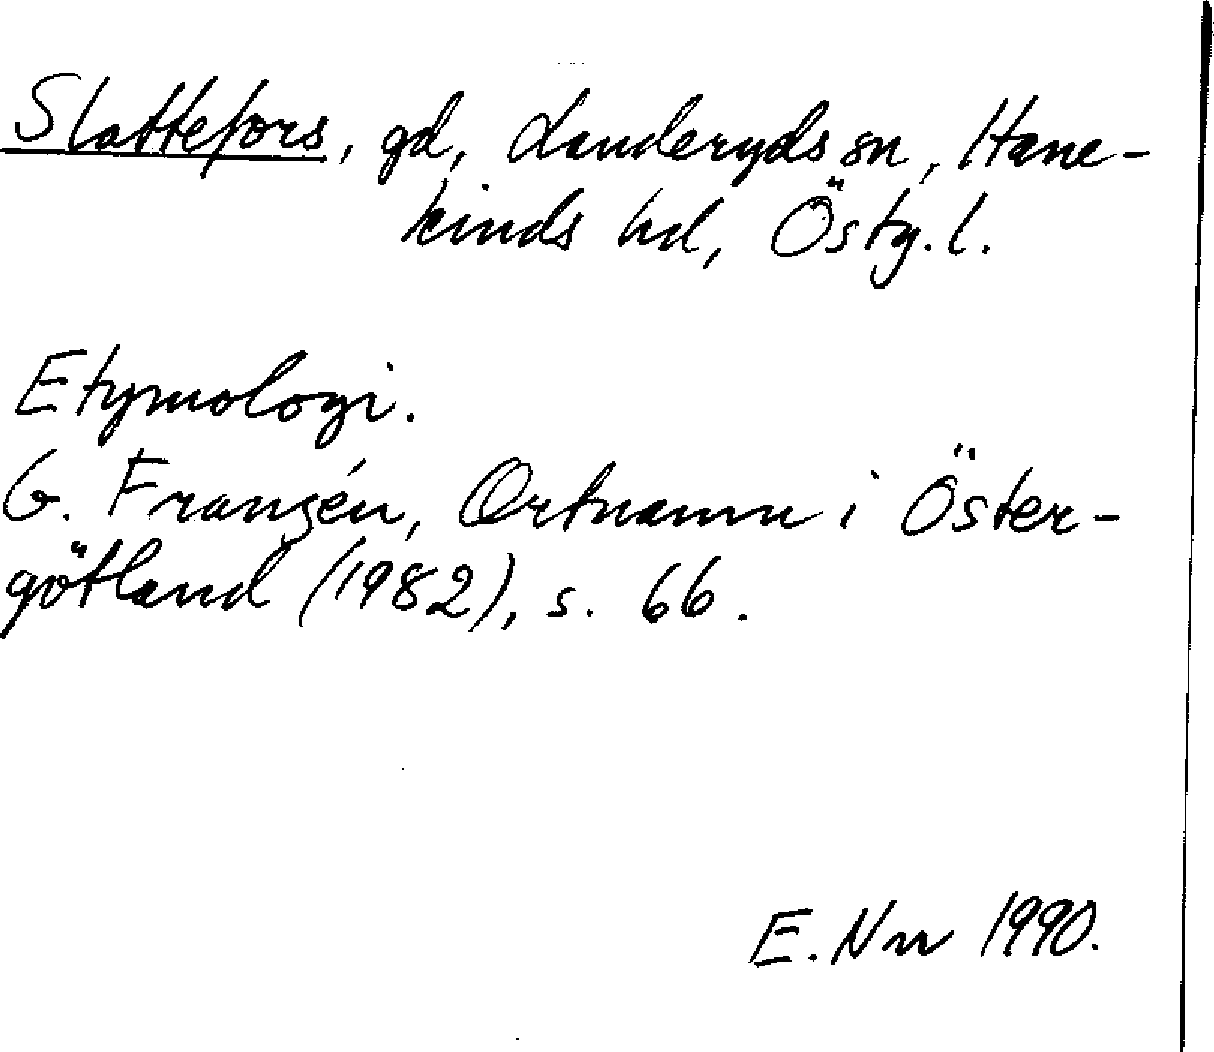 Slattefors, gd, Landeryds sn, Hane-
kinds hd, Östg.l.
Etymologi.
G. Franzén, Ortnamn i Öster-
götland (1982), s. 66.
E. Nn 1990.